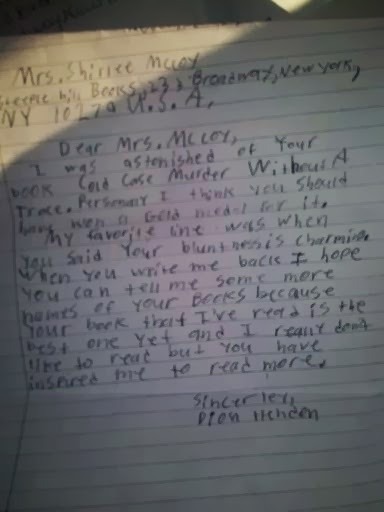 Mrs. Shirlee McCoy
Steeple hill Books, 233 Broadway, New York,
NY 10279 U.S.A.
Dear Mrs. McCoy,
I was astonished of Your
book Cold Case Murder Without A
Trace. Personaly I think you should
have won a Gold medal for it.
My favorite line was when
you said Your bluntness is charming.
When you write me back I hope
you can tell me some more
names of your Books because
your book that I've read is the
best one yet and I really don't
like to read but you have
inspered me to read more.
Sincerley,
Dion